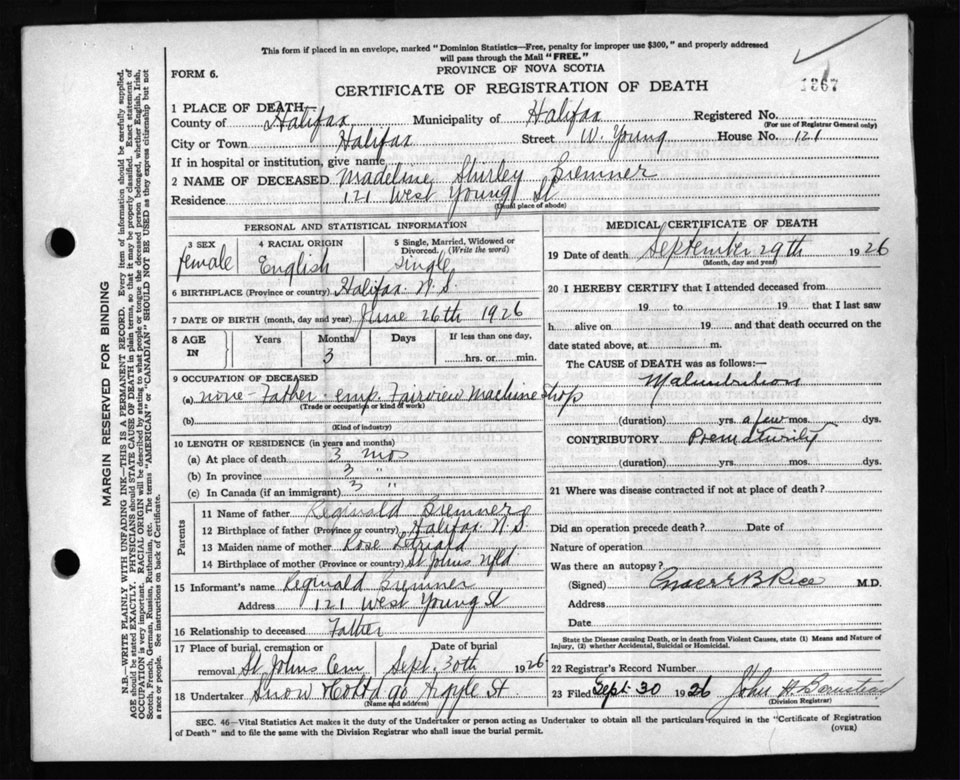 This form if placed in an envelope, marked "Dominion Statistics—Free, penalty for improper use $300," and properly addressed
will pass through the Mail "FREE."
FORM 6.
PROVINCE OF NOVA SCOTIA
1367
CERTIFICATE OF REGISTRATION OF DEATH
1 PLACE OF DEATH—
County of Halifax Municipality of Halifax Registered No.
(For use of Registrar General only)
City or Town Halifax Street W. Young House No. 121
If in hospital or institution, give name
2 NAME OF DECEASED Madeline Shirley Bremner
Residence 121 West Young St
(Usual place of abode)
PERSONAL AND STATISTICAL INFORMATION
3 SEX female
4 RACIAL ORIGIN English
5 Single, Married, Widowed or Divorced. (Write the word) single
6 BIRTHPLACE (Province or country) Halifax N.S.
7 DATE OF BIRTH (month, day and year) June 26th 1926
8 AGE IN Years Months Days If less than one day,
3 hrs. or min.
9 OCCUPATION OF DECEASED
(a) none Father emp. Fairview Machine Shop
(Trade or occupation or kind of work)
(b)
(Kind of industry)
10 LENGTH OF RESIDENCE (in years and months)
(a) At place of death 3 mos
(b) In province 3 "
(c) In Canada (if an immigrant) 3 "
Parents
11 Name of father Reginald Bremner
12 Birthplace of father (Province or country) Halifax N.S.
13 Maiden name of mother Rose
14 Birthplace of mother (Province or country) St Johns Nfld
15 Informant's name Reginald Bremner
Address 121 West Young St
16 Relationship to deceased Father
17 Place of burial, cremation or removal St Johns Cem
Date of burial Sept. 30th 1926
18 Undertaker Snow & Co Ltd 90 Argyle St
(Name and address)
MEDICAL CERTIFICATE OF DEATH
19 Date of death September 29th 1926
(Month, day and year)
20 I HEREBY CERTIFY that I attended deceased from
19 to 19 that I last saw
h alive on 19 and that death occurred on the
date stated above, at m.
The CAUSE OF DEATH was as follows:—
Malnutrition
(duration) yrs. a few mos. dys.
CONTRIBUTORY Prematurity
(duration) yrs. mos. dys.
21 Where was disease contracted if not at place of death?
Did an operation precede death? Date of
Nature of operation
Was there an autopsy?
(Signed) B Rice M.D.
Address
Date
State the Disease causing Death, or in death from Violent Causes, state (1) Means and Nature of
Injury, (2) whether Accidental, Suicidal or Homicidal.
22 Registrar's Record Number
23 Filed Sept. 30 1926 John
(Division Registrar)
SEC. 46—Vital Statistics Act makes it the duty of the Undertaker or person acting as Undertaker to obtain all the particulars required in the "Certificate of Registration
of Death" and to file the same with the Division Registrar who shall issue the burial permit.
(OVER)
MARGIN RESERVED FOR BINDING
N.B.—WRITE PLAINLY WITH UNFADING INK—THIS IS A PERMANENT RECORD. Every item of information should be carefully supplied.
AGE should be stated EXACTLY. PHYSICIANS should STATE CAUSE OF DEATH in plain terms, so that it may be properly classified. Exact statement of
OCCUPATION is very important. RACIAL ORIGIN will be described by stating to what people or tongue the deceased person belonged, whether English, Irish,
Scotch, French, German, Russian, Ruthenian, etc. The terms "AMERICAN" or "CANADIAN" SHOULD NOT BE USED as they express citizenship but not
a race or people. See instructions on back of Certificate.